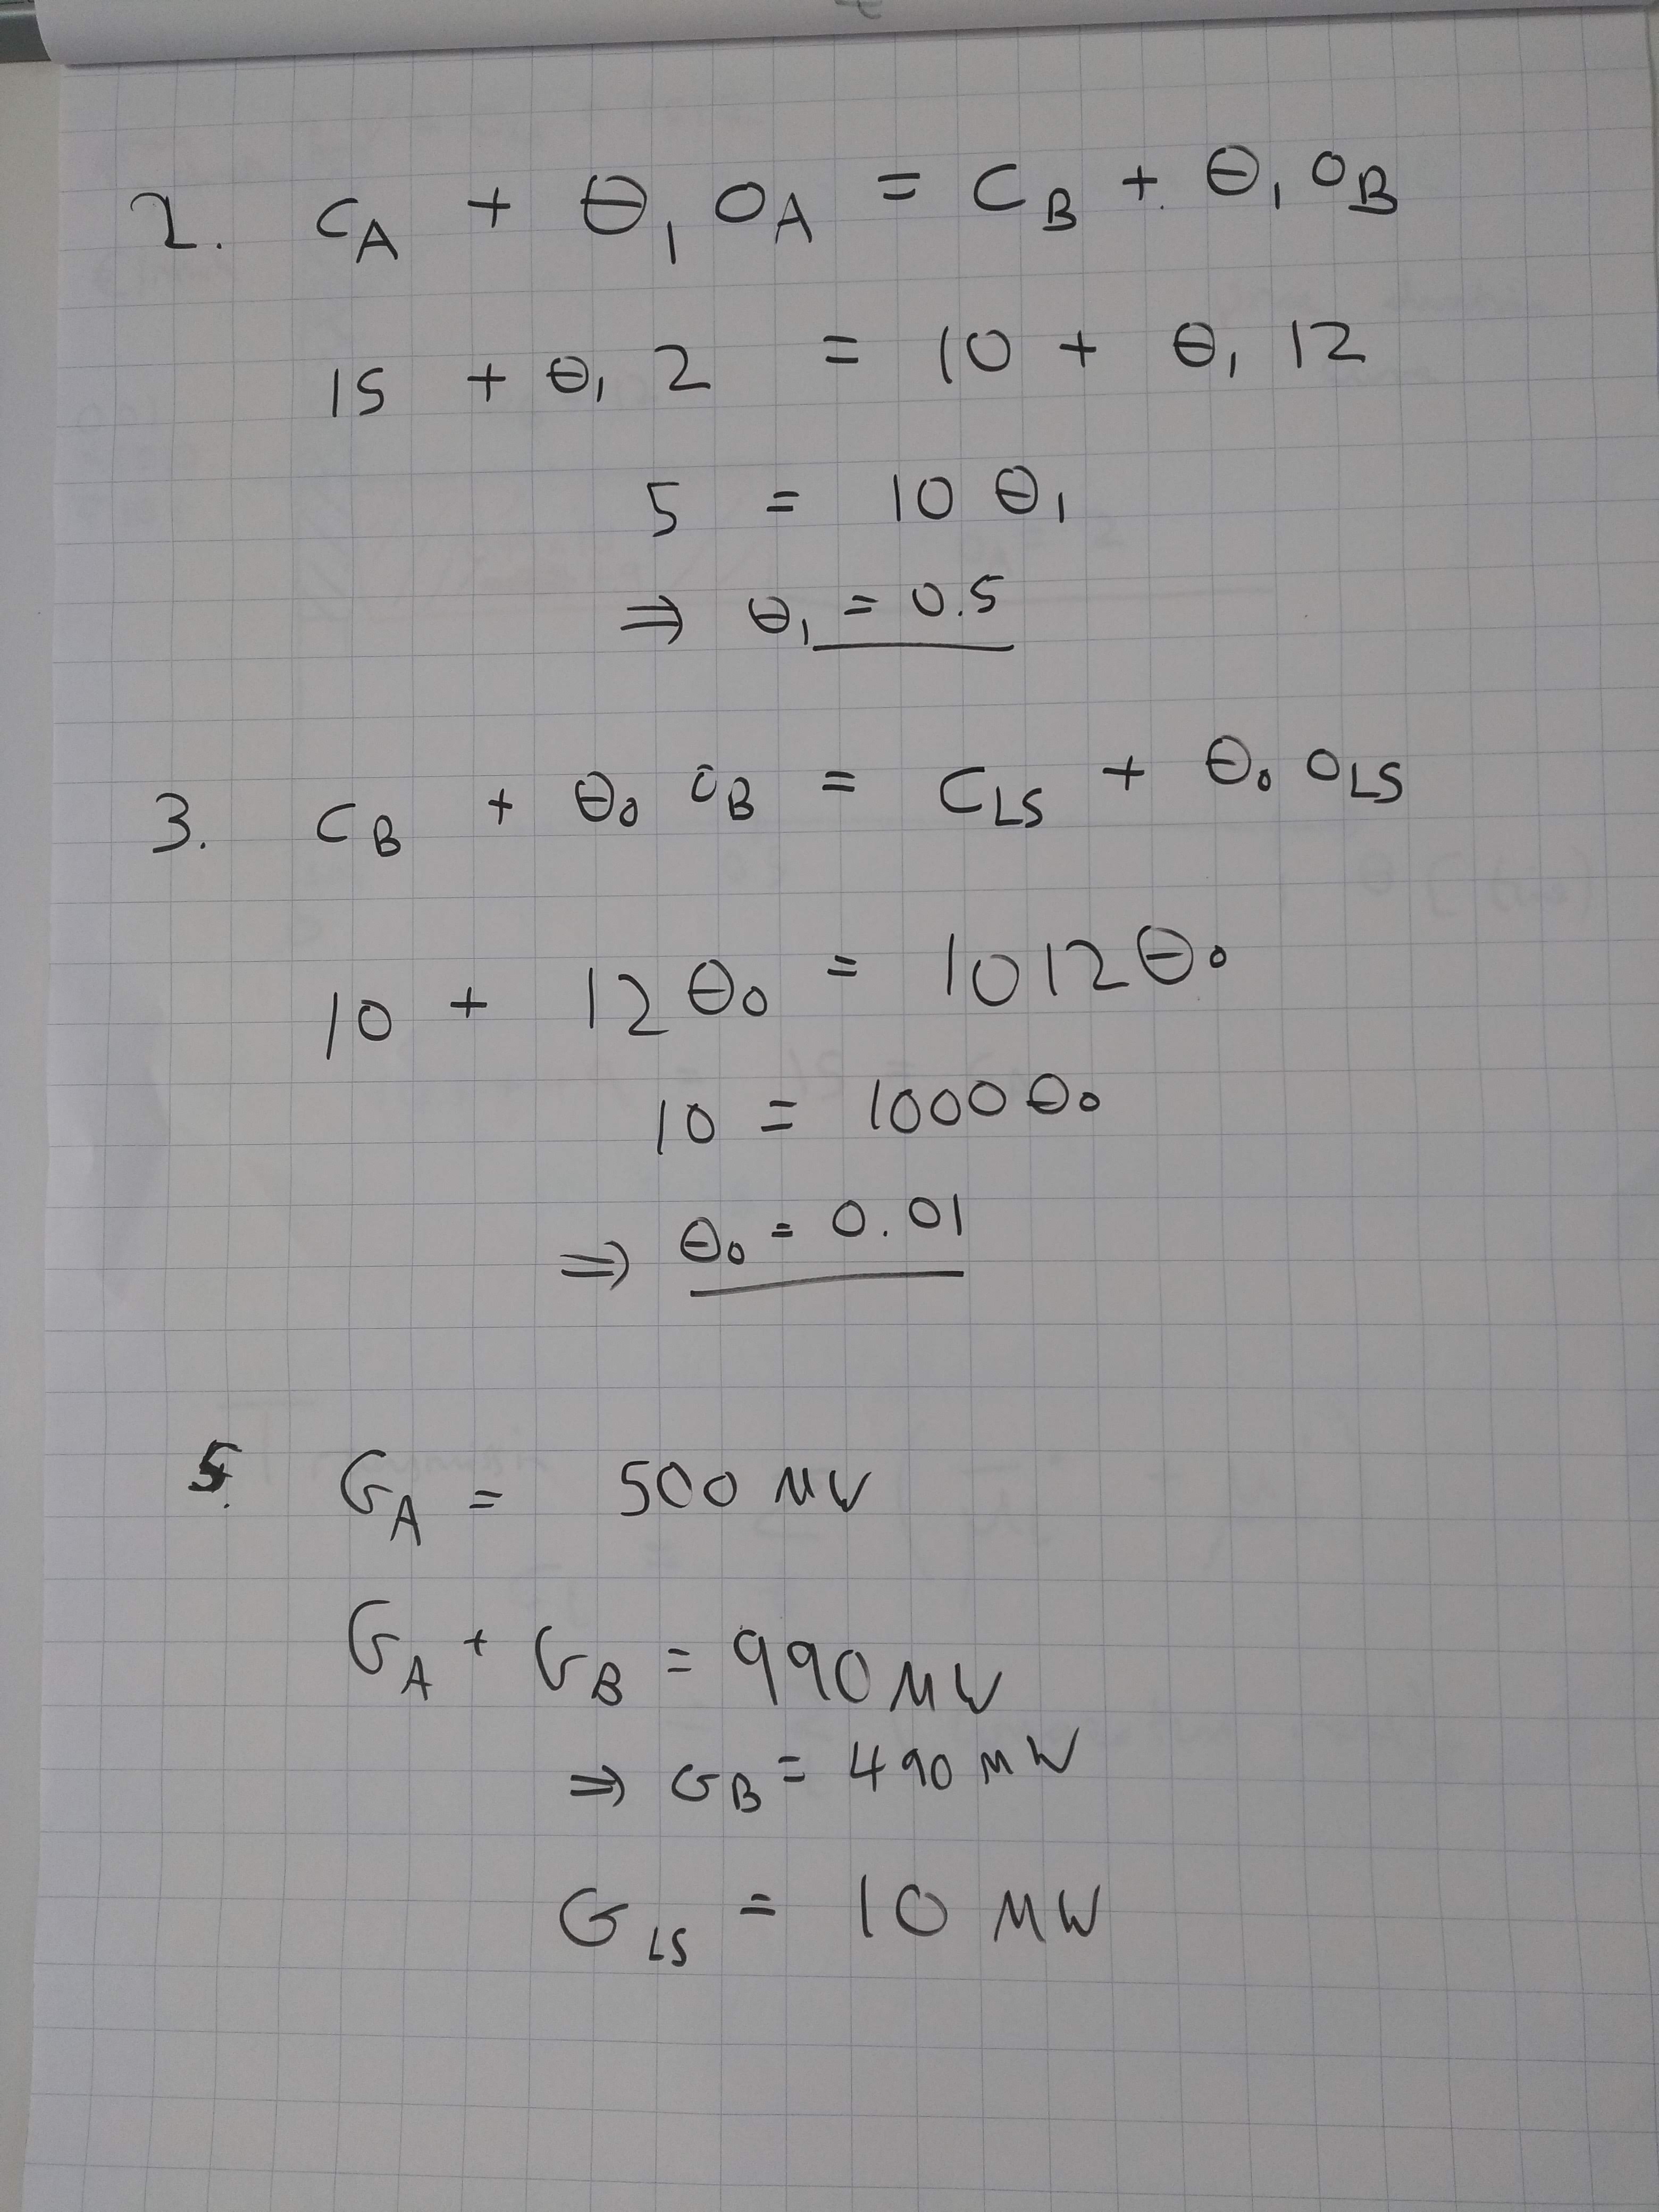 2. C_A + θ_1 O_A = C_B + θ_1 O_B
15 + θ_1 2 = 10 + θ_1 12
5 = 10 θ_1
⇒ θ_1 = 0.5
3. C_B + θ_0 O_B = C_LS + θ_0 O_LS
10 + 12 θ_0 = 1012 θ_0
10 = 1000 θ_0
⇒ θ_0 = 0.01
5. G_A = 500 MW
G_A + G_B = 990 MW
⇒ G_B = 490 MW
G_LS = 10 MW